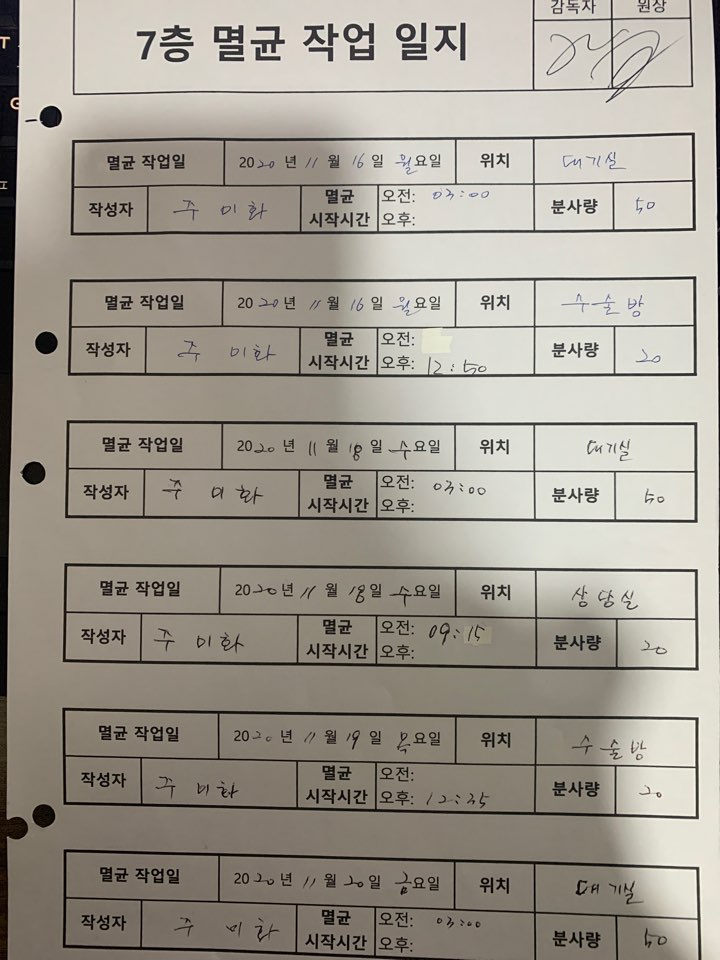 감독자 원장
7층 멸균 작업 일지
멸균 작업일 2020년 11월 16일 월요일 위치 대기실
작성자 주미화 멸균 시작시간 오전: 03:00 오후: 분사량 50
멸균 작업일 2020년 11월 16일 월요일 위치 수술방
작성자 주미화 멸균 시작시간 오전: 오후: 12:50 분사량 20
멸균 작업일 2020년 11월 18일 수요일 위치 대기실
작성자 주미화 멸균 시작시간 오전: 03:00 오후: 분사량 50
멸균 작업일 2020년 11월 18일 수요일 위치 상담실
작성자 주미화 멸균 시작시간 오전: 09:15 오후: 분사량 20
멸균 작업일 2020년 11월 19일 목요일 위치 수술방
작성자 주미화 멸균 시작시간 오전: 오후: 12:35 분사량 20
멸균 작업일 2020년 11월 20일 금요일 위치 대기실
작성자 주미화 멸균 시작시간 오전: 03:00 오후: 분사량 50